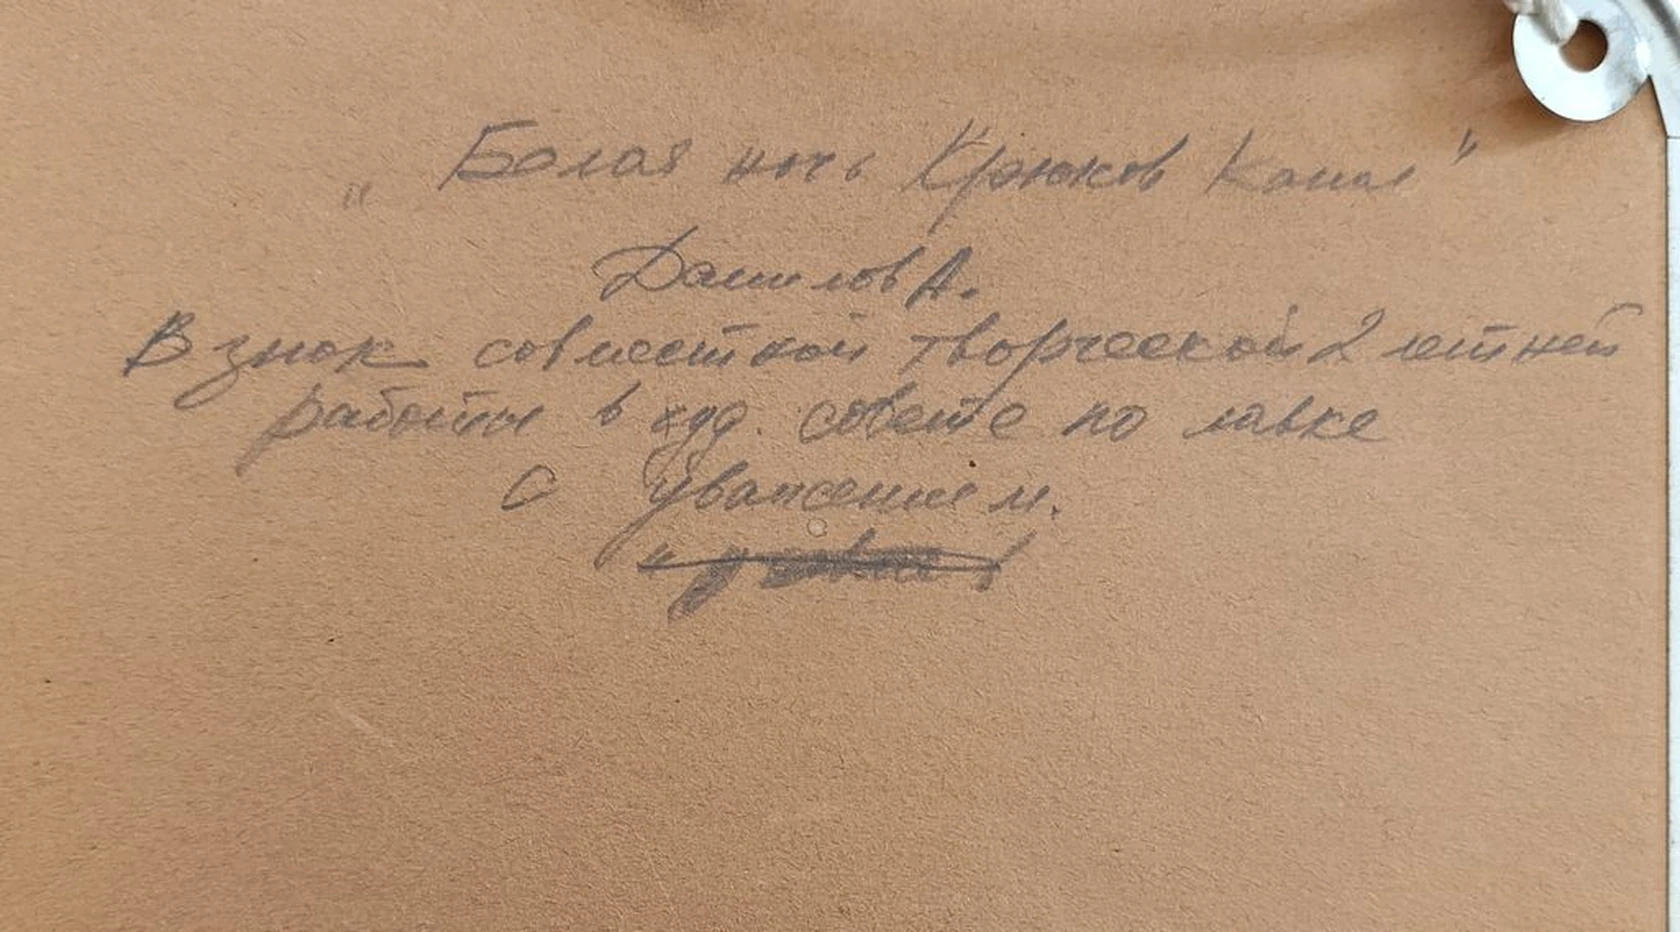 „Белая ночь Крюков Канал"
Данилов А.
В знак совместной творческой 2 летней
работы в худ. совете по лавке
С Уважением.